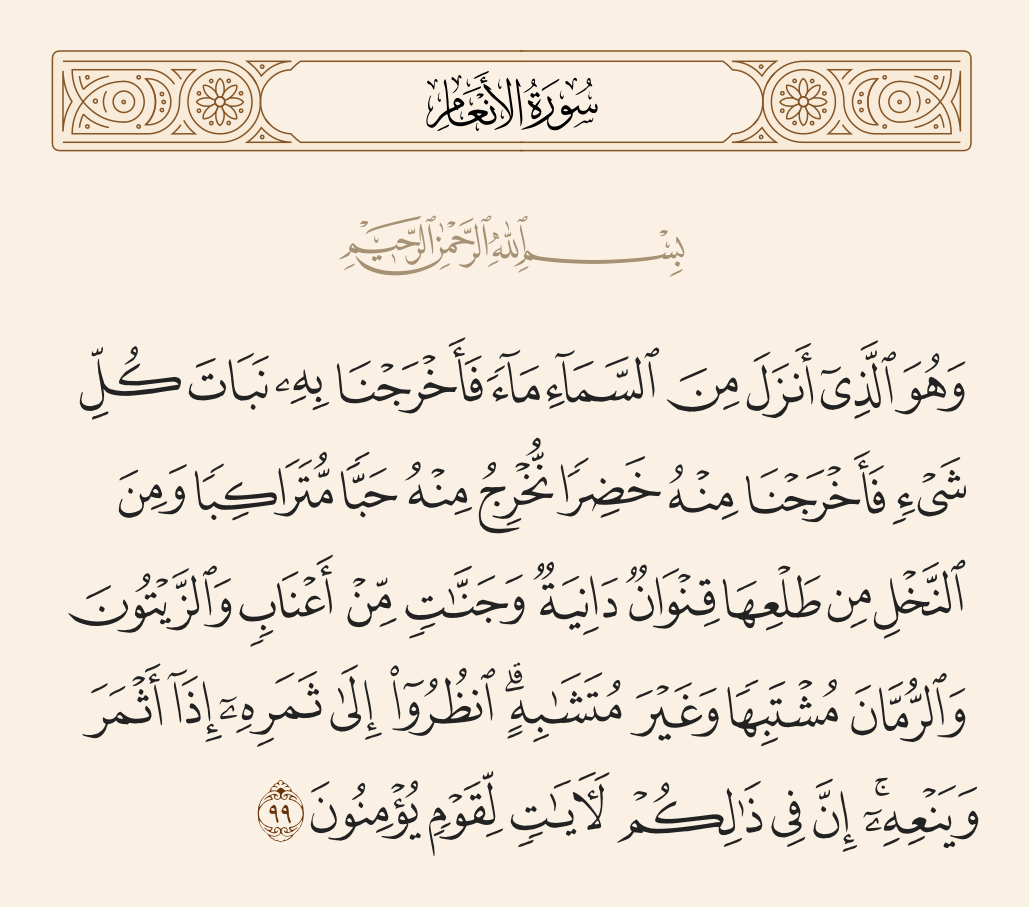 سُورَةُ الأَنْعَامِ
بِسْمِ ٱللَّهِ ٱلرَّحْمَٰنِ ٱلرَّحِيمِ
وَهُوَ ٱلَّذِىٓ أَنزَلَ مِنَ ٱلسَّمَآءِ مَآءً فَأَخْرَجْنَا بِهِۦ نَبَاتَ كُلِّ
شَىْءٍ فَأَخْرَجْنَا مِنْهُ خَضِرًا نُّخْرِجُ مِنْهُ حَبًّا مُّتَرَاكِبًا وَمِنَ
ٱلنَّخْلِ مِن طَلْعِهَا قِنْوَانٌ دَانِيَةٌ وَجَنَّـٰتٍ مِّنْ أَعْنَابٍ وَٱلزَّيْتُونَ
وَٱلرُّمَّانَ مُشْتَبِهًا وَغَيْرَ مُتَشَـٰبِهٍ ۗ ٱنظُرُوٓا۟ إِلَىٰ ثَمَرِهِۦٓ إِذَآ أَثْمَرَ
وَيَنْعِهِۦٓ ۚ إِنَّ فِى ذَٰلِكُمْ لَـَٔايَـٰتٍ لِّقَوْمٍ يُؤْمِنُونَ ٩٩